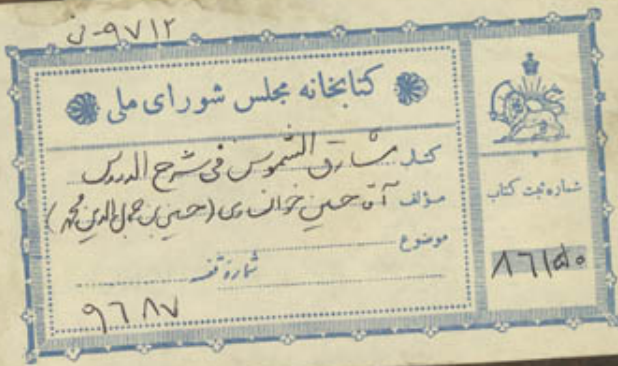 ۹۷۱۲-ف
کتابخانه مجلس شورای ملی
کتاب مشارق الشموس فی شرح الدروس
مؤلف آقا حسین خوانساری (حسین بن جمال الدین محمد)
موضوع
شماره قفسه
۹۶۸۷
شماره ثبت کتاب